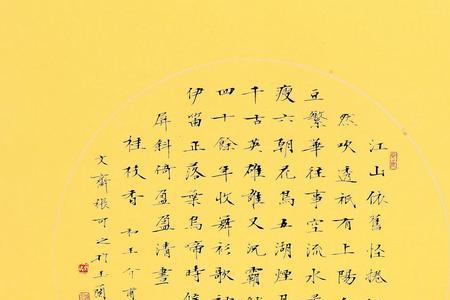 江山依舊怪捲
然吹透祇有上陽
豆繁華往事空流水
瘦六朝花鳥五湖煙
千古英雄誰又況霸
四十餘年收舞衫歌
伊笛正落葉烏啼時
屏斜倚盈盈清晝
桂枝香 和王介甫
文齋張可之於王